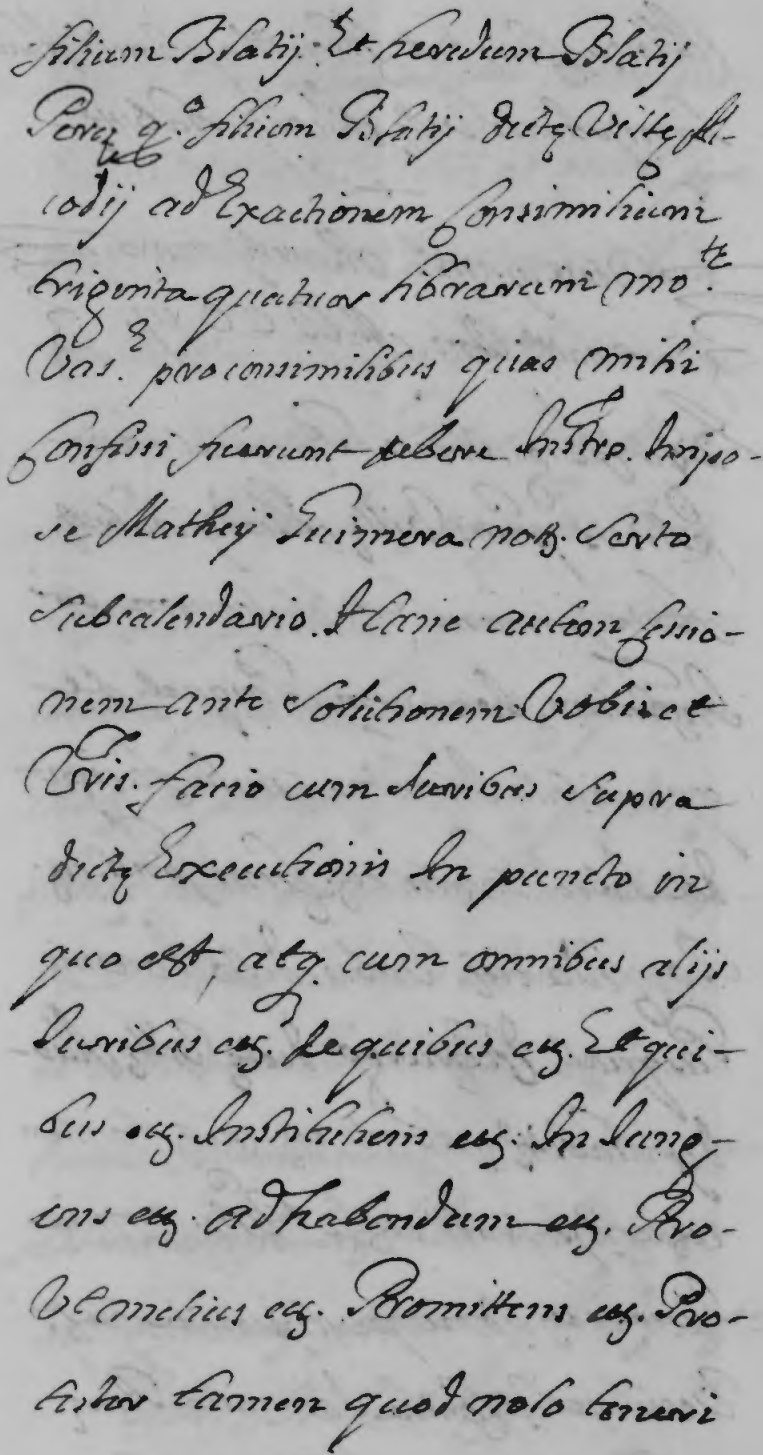 filium Blasij. Et heredum Blasij
Perez q.º filium Blasij dictę Villę Al-
codij ad Exactionem Consimilium
triginta quatuor librarum mo.tę
Val.ę pro consimilibus quas mihi
Confessi fuerunt debere Instro. In ipo-
se Mathej Guimera notz. Certo
sub calendario. Hanc autem Cessio-
nem ante Solutionem Vobis et
Vris. facio cum Juribus Supra
dictę Executionis In puncto in
quo est, atq. cum omnibus alijs
Juribus etz. de quibus etz. Et qui-
bus etz. Instituens etz. In Jung-
ens etz. ad habendum etz. Pro-
Ut melius etz. Promittens etz. Pro-
testor tamen quod nolo teneri